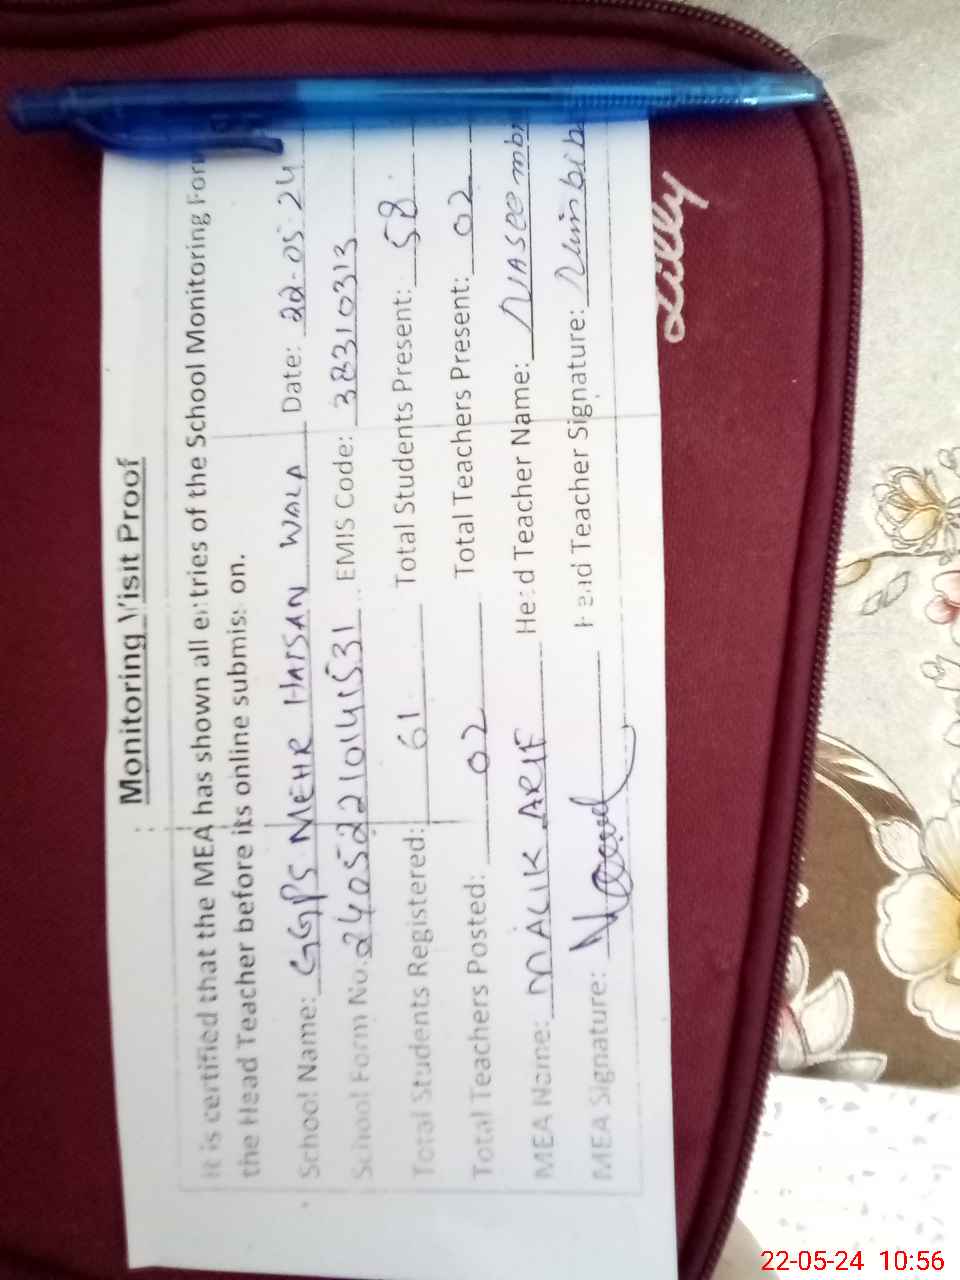 Monitoring Visit Proof
It is certified that the MEA has shown all entries of the School Monitoring Form
the Head Teacher before its online submission.
School Name: GGPS MEHR HAISAN WALA Date: 22-05-24
School Form No. 24052210141531 EMIS Code: 38310313
Total Students Registered: 61 Total Students Present: 58
Total Teachers Posted: 02 Total Teachers Present: 02
MEA Name: MALIK ARIF Head Teacher Name:
MEA Signature: Head Teacher Signature:
Lilly
22-05-24 10:56